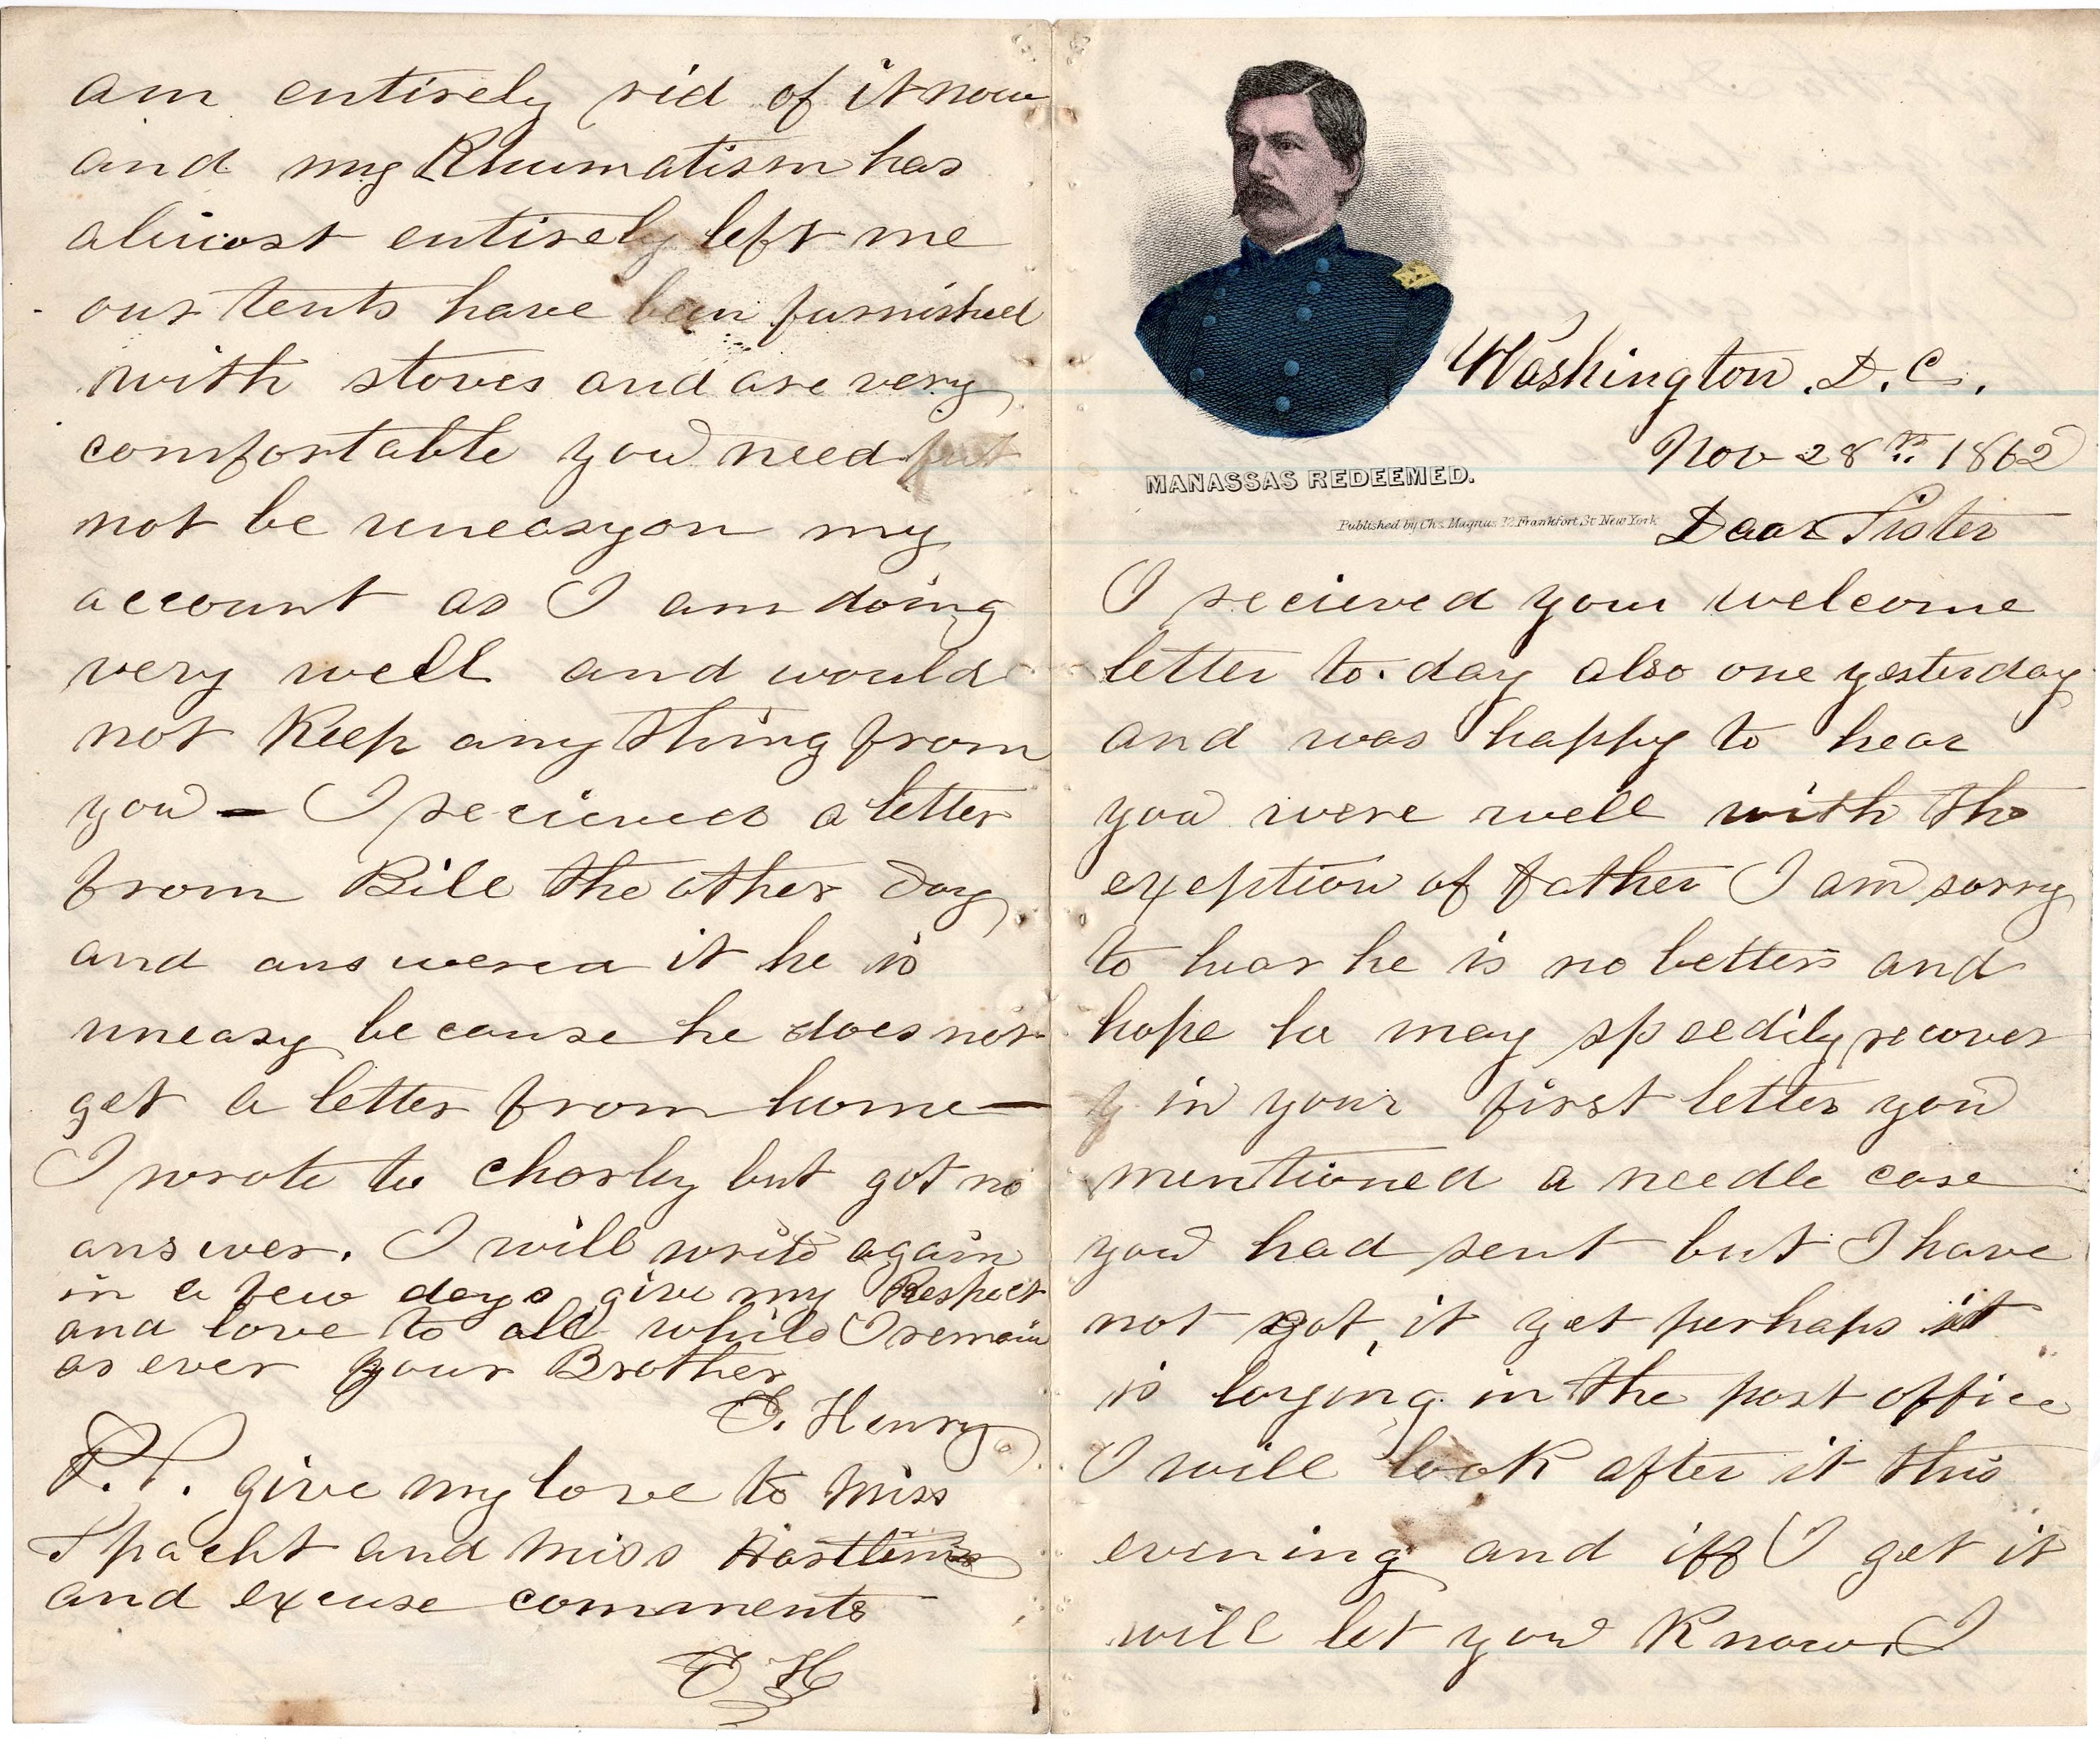 MANASSAS REDEEMED.
Published by Chs. Magnus 12 Frankfort St New York
Washington. D. C.
Nov 28th. 1862
Dear Sister
I recieved your welcome
letter to. day also one yesterday
and was happy to hear
you were well with the
exeption of father I am sorry
to hear he is no better and
hope he may speedily recover
y in your first letter you
mentioned a needle case
you had sent but I have
not got, it yet perhaps it
is laying in the post office
I will look after it this
evening and iff I get it
will let you Know. I
am entirely rid of it now
and my Rhumatism has
almost entirely left me
our tents have been furnished
with stoves and are very
comfortable you need
not be uneasy on my
account as I am doing
very well and would
not Keep any thing from
you – I recieved a letter
from Bill the other day
and answered it he is
uneasy because he does not
get a letter from home —
I wrote to Charley but got no
answer. I will write again
in a few days give my Respect
and love to all while I remain
as ever your Brother
T. Henry
P.S. give my love to Miss
Spacht and Miss
and excuse comments
T H